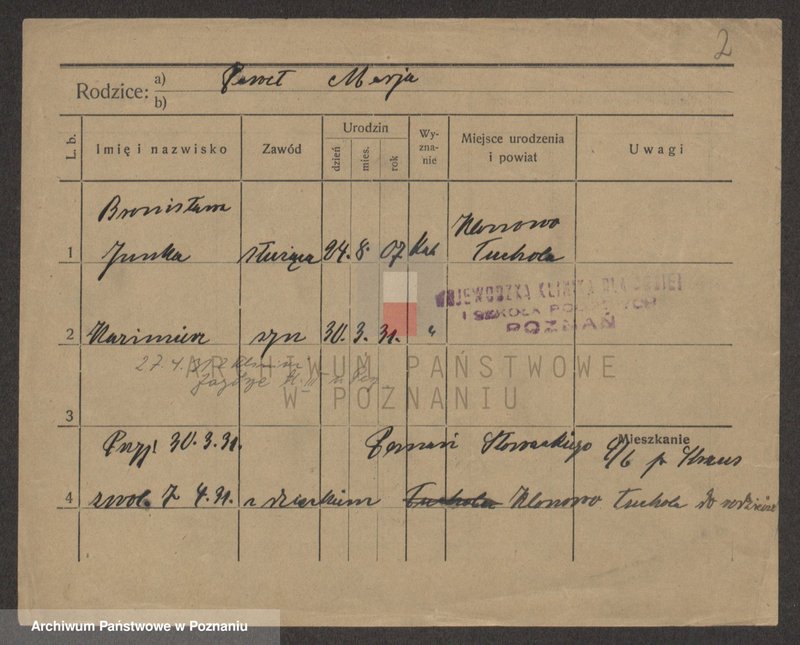 2
Rodzice: a) Paweł Marja
b)
L. b.
Imię i nazwisko
Zawód
Urodzin
dzień
mies.
rok
Wy-
zna-
nie
Miejsce urodzenia
i powiat
Uwagi
Bronisława
Klonowo
1 Junka służąca 24. 8. 07. Kat Tuchola
WOJEWODZKA KLINIKA DLA KOBIET
I SZKOŁA POŁOŻNYCH
POZNAŃ
2 Kazimierz syn 30. 3. 31. "
27.4.31
ARCHIWUM PAŃSTWOWE
W POZNANIU
3
Przyj. 30.3.31. Poznań Słowackiego Mieszkanie
p Kraus
4 zwol. 7 4.31. z dzieckiem Tuchola Klonowo Tuchola do rodziców
Archiwum Państwowe w Poznaniu